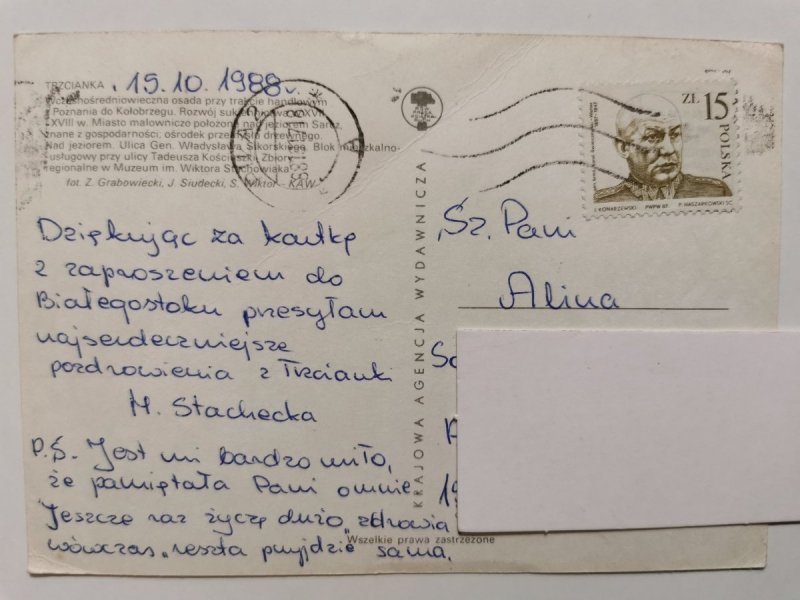 TRZCIANKA
15.10.1988r.
Wczesnośredniowieczna osada przy trakcie handlowym
z Poznania do Kołobrzegu. Rozwój
XVIII w. Miasto malowniczo położone nad jeziorem Sarcz,
znane z gospodarności; ośrodek drzewnego.
Nad jeziorem. Ulica Gen. Władysława Sikorskiego. Blok mieszkalno-
-usługowy przy ulicy Tadeusza Kościuszki. Zbiory
regionalne w Muzeum im. Wiktora Stachowiaka
fot. Z. Grabowiecki, J. Siudecki, S. Wiktor - KAW
Dziękując za kartkę
z zaproszeniem do
Białegostoku przesyłam
najserdeczniejsze
pozdrowienia z Trzcianki
M. Stachecka
P.S. Jest mi bardzo miło,
że pamiętała Pani o mnie.
Jeszcze raz życzę dużo „zdrowia
wówczas „reszta przyjdzie sama.
KRAJOWA AGENCJA WYDAWNICZA
Wszelkie prawa zastrzeżone
ZŁ 15
POLSKA
J. KONARZEWSKI PWPW 87 P. NASZARKOWSKI SC.
Sz. Pani
Alina
19